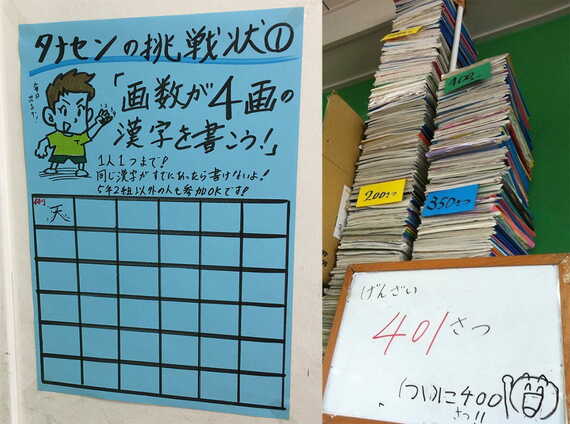 タナセンの挑戦状①
「画数が4画の
漢字を書こう!」
1人1つまで!
同じ漢字がすでにあったら書けないよ!
5年2組以外の人も参加OKです!
例
天
200さつ
350さつ
げんざい
401さつ
ついに400
さつ!!